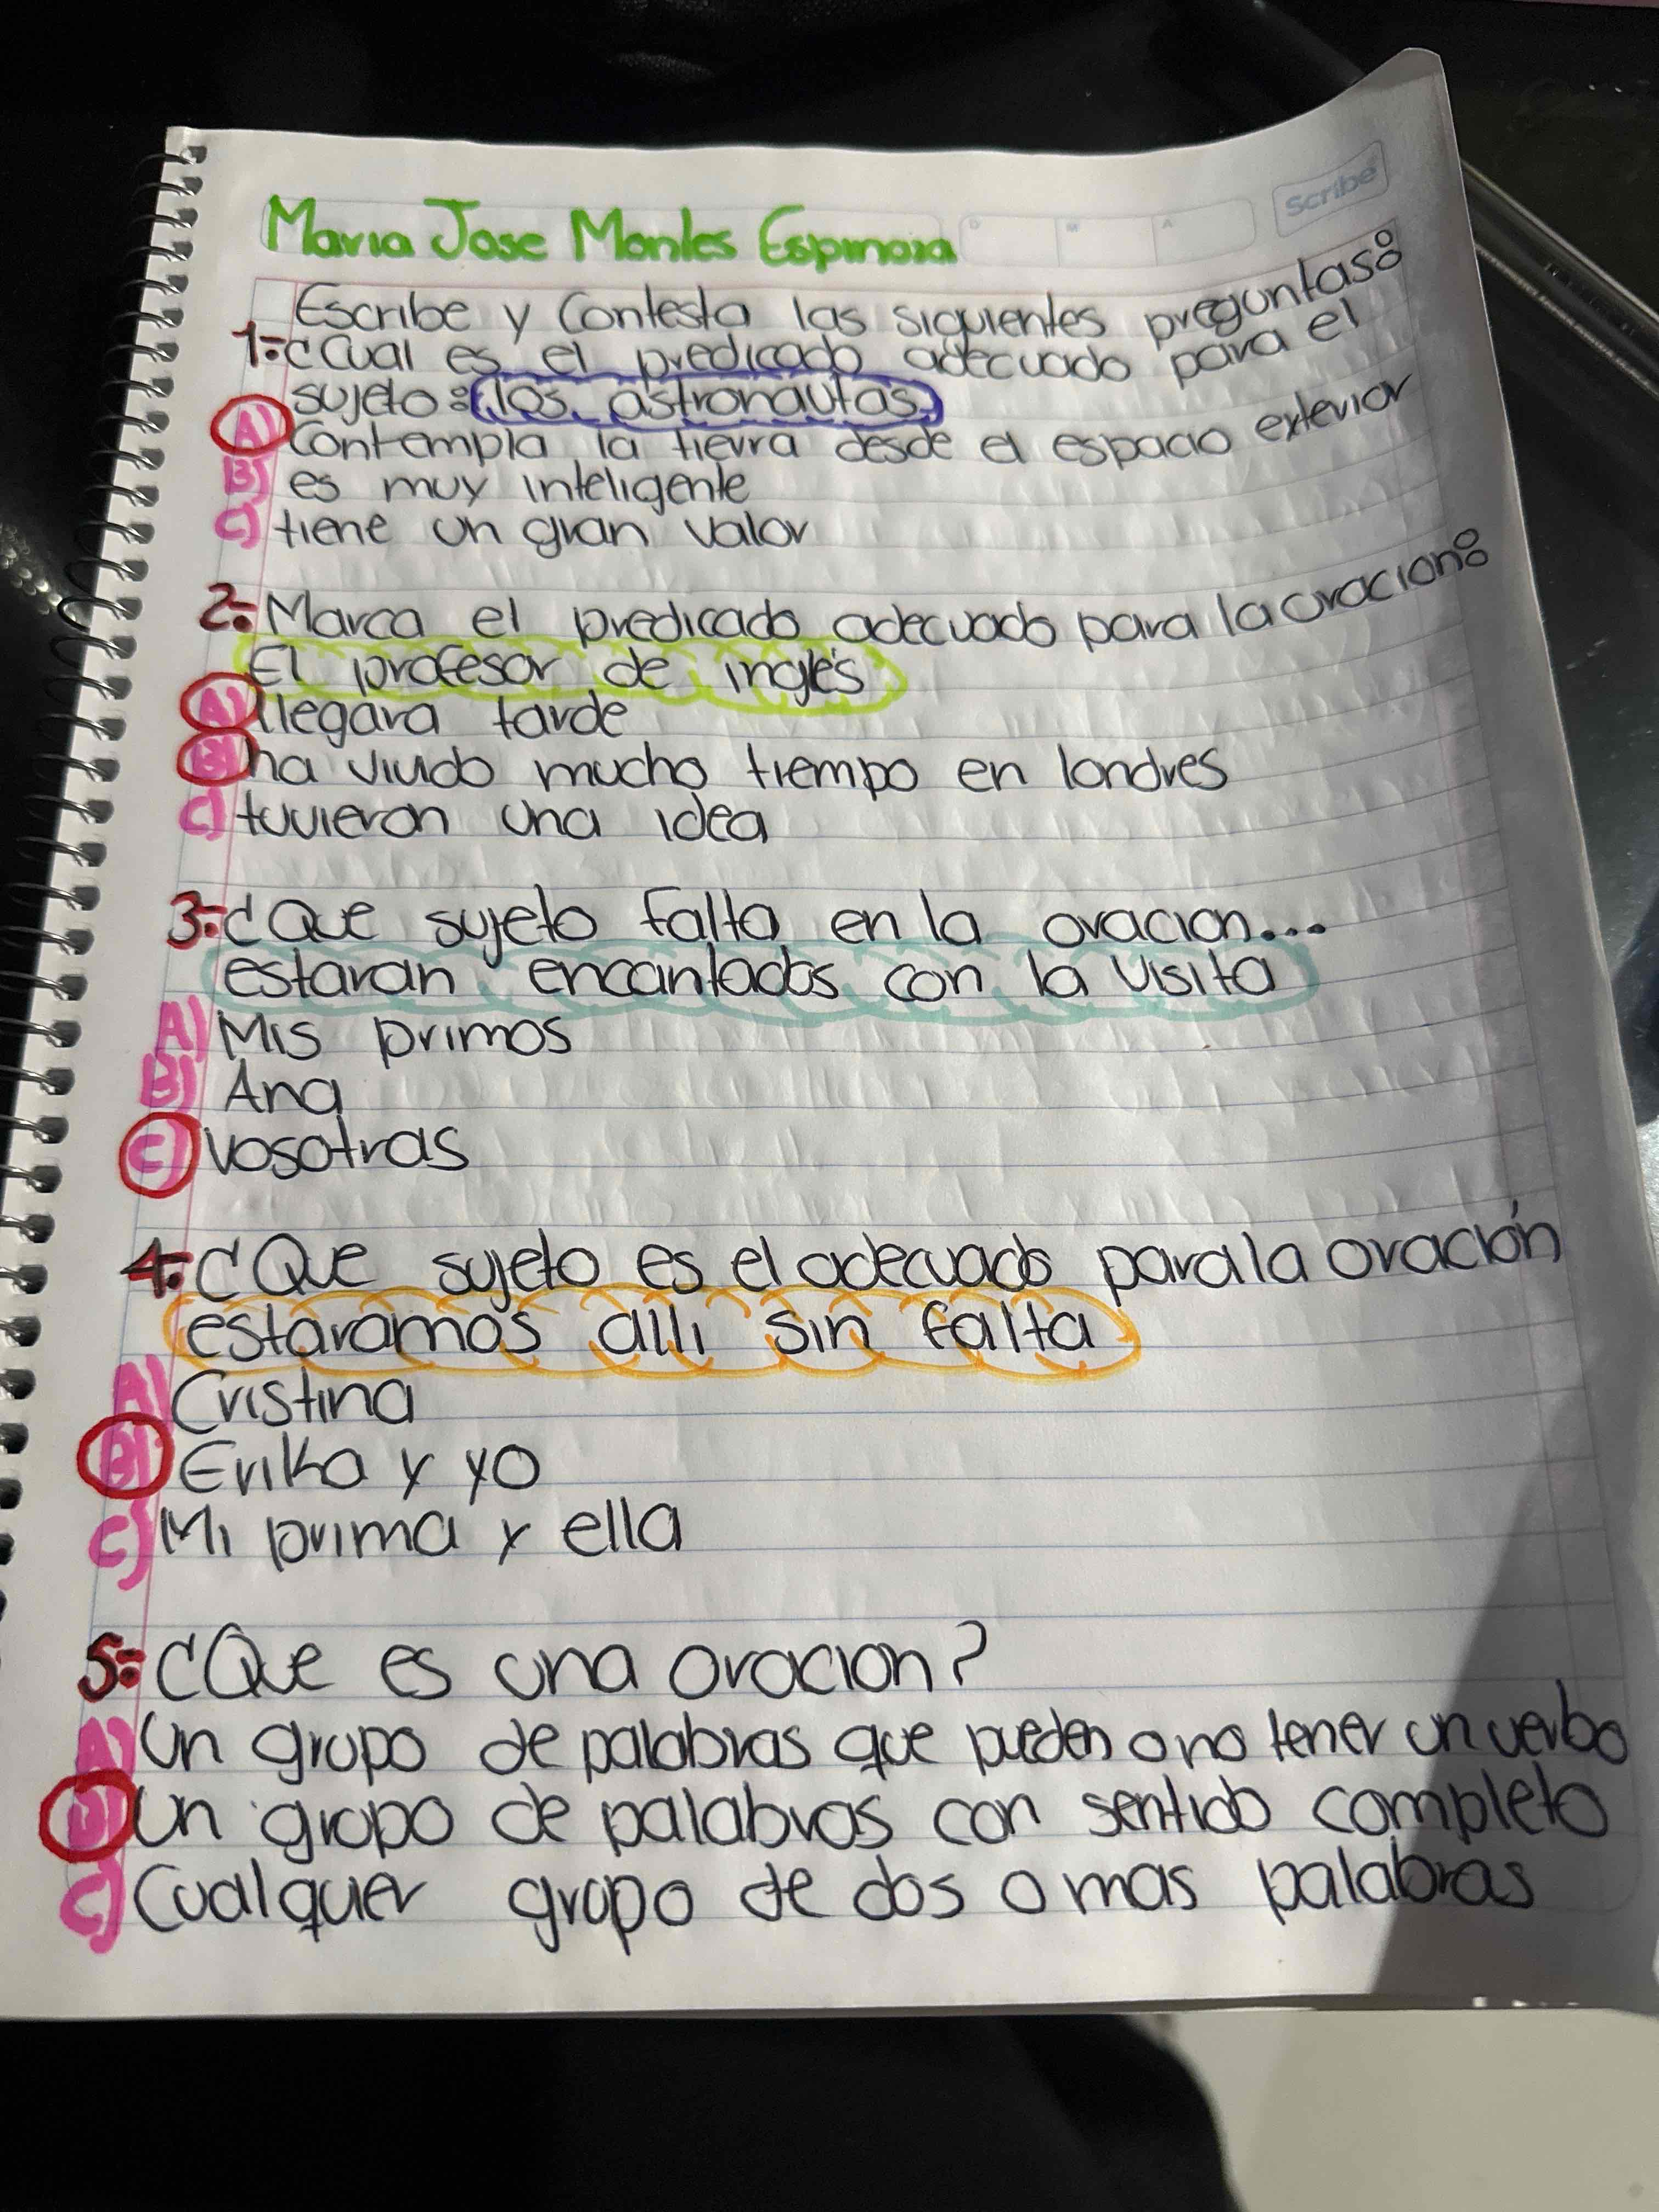 Scribe
D M A
Maria Jose Monles Espinoza
Escribe y Contesta las siguientes preguntas:
1.-¿Cual es el predicado adecuado para el
sujeto: los astronautas
A) Contempla la tierra desde el espacio exterior
B) es muy inteligente
C) tiene un gran valor
2.- Marca el predicado adecuado para la oracion:
El profesor de inglés
A) llegara tarde
B) ha vivido mucho tiempo en londres
C) tuvieron una idea
3.-¿Que sujeto falta en la oracion...
estaran encantados con la visita
A) Mis primos
B) Ana
C) vosotras
4.-¿Que sujeto es el adecuado para la oración
estaramos alli sin falta
A) Cristina
B) Erika y yo
C) Mi prima y ella
5.-¿Que es una oracion?
A) Un grupo de palabras que pueden o no tener un verbo
B) un grupo de palabras con sentido completo
C) Cualquier grupo de dos o mas palabras